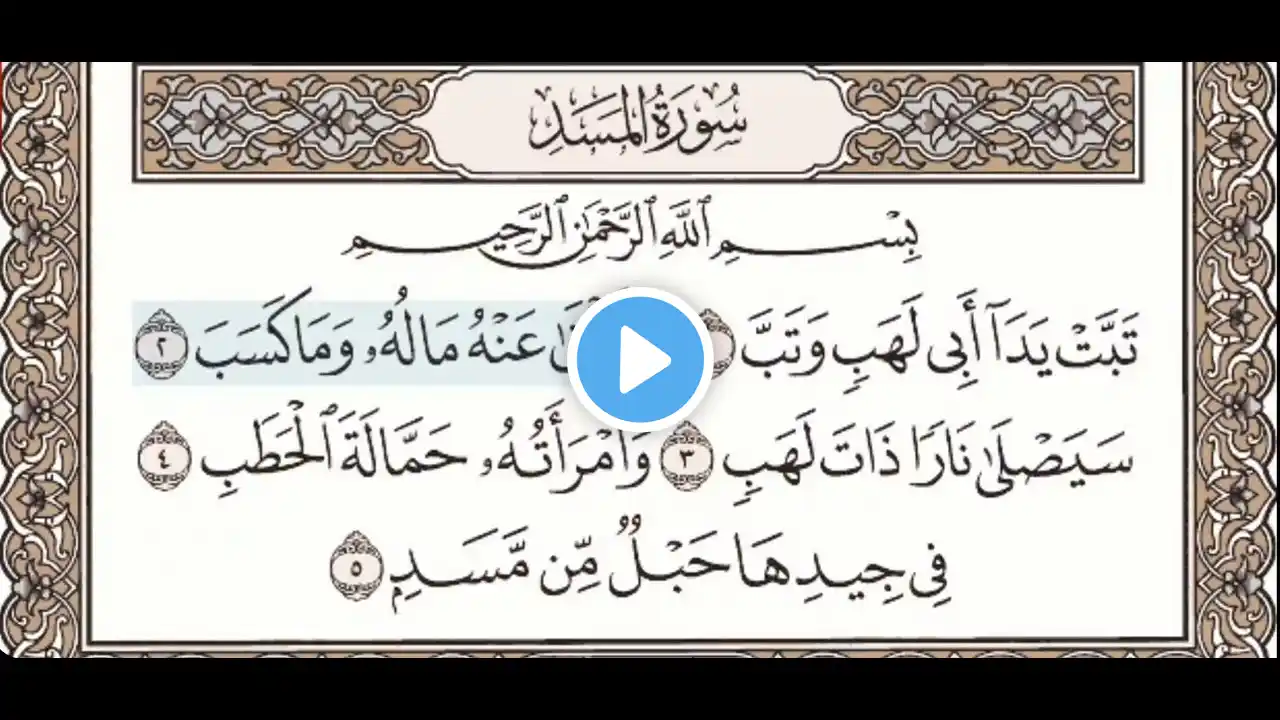 سُورَةُ المَسَدِ
بِسْمِ ٱللَّهِ ٱلرَّحْمَٰنِ ٱلرَّحِيمِ
تَبَّتْ يَدَآ أَبِى لَهَبٍ وَتَبَّ عَنْهُ مَالُهُۥ وَمَا كَسَبَ ٢
سَيَصْلَىٰ نَارًا ذَاتَ لَهَبٍ ٣ وَٱمْرَأَتُهُۥ حَمَّالَةَ ٱلْحَطَبِ ٤
فِى جِيدِهَا حَبْلٌ مِّن مَّسَدٍۭ ٥